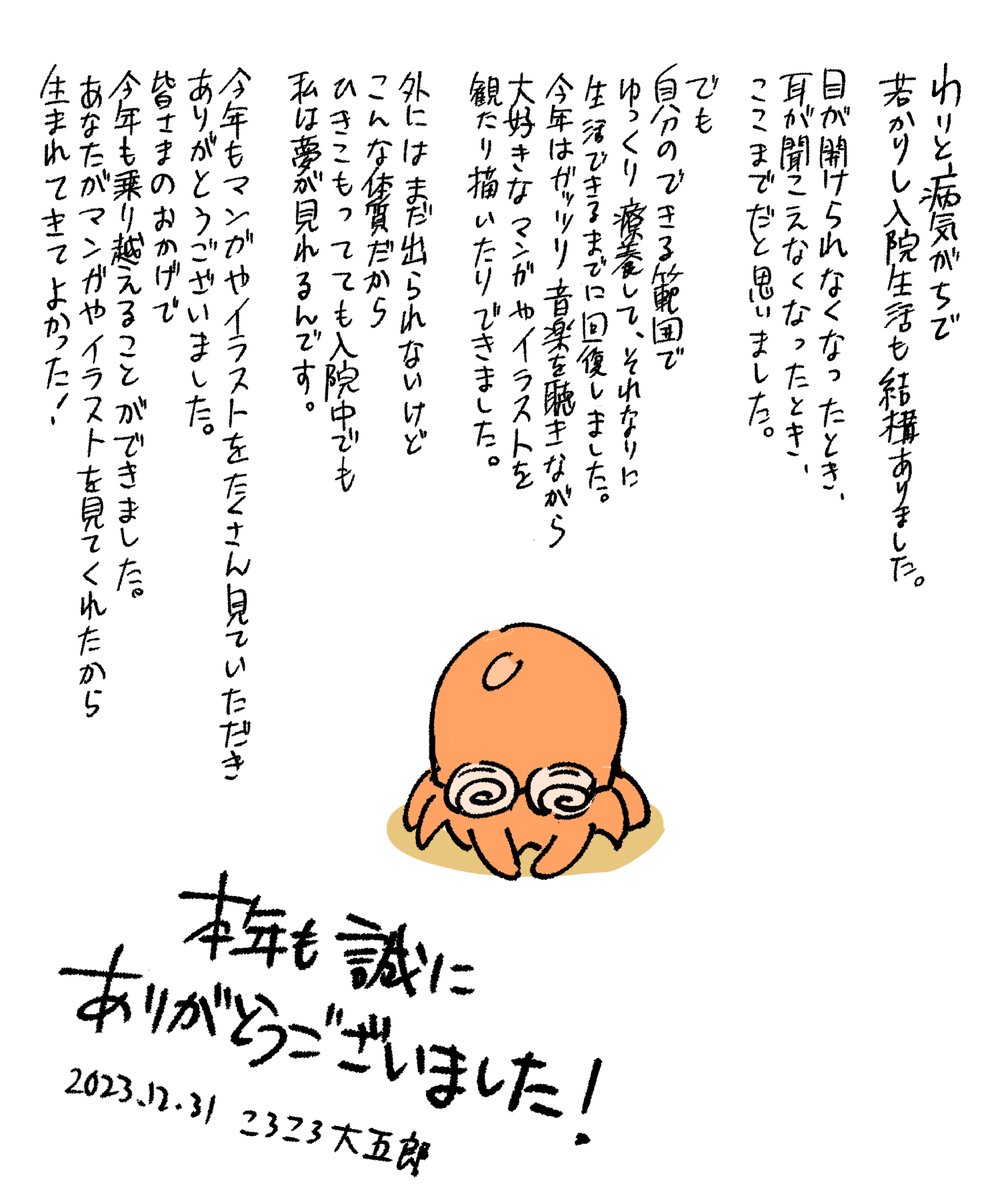 わりと病気がちで
若かりし入院生活も結構ありました。
目が開けられなくなったとき、
耳が聞こえなくなったとき、
ここまでだと思いました。
でも
自分のできる範囲で
ゆっくり療養して、それなりに
生活できるまでに回復しました。
今年はガッツリ音楽を聴きながら
大好きなマンガやイラストを
観たり描いたりできました。
外にはまだ出られないけど
こんな体質だから
ひきこもってても入院中でも
私は夢が見れるんです。
今年もマンガやイラストをたくさん見ていただき
ありがとうございました。
皆さまのおかげで
今年も乗り越えることができました。
あなたがマンガやイラストを見てくれたから
生まれてきてよかった!
本年も誠に
ありがとうございました!
2023.12.31 ころころ大五郎